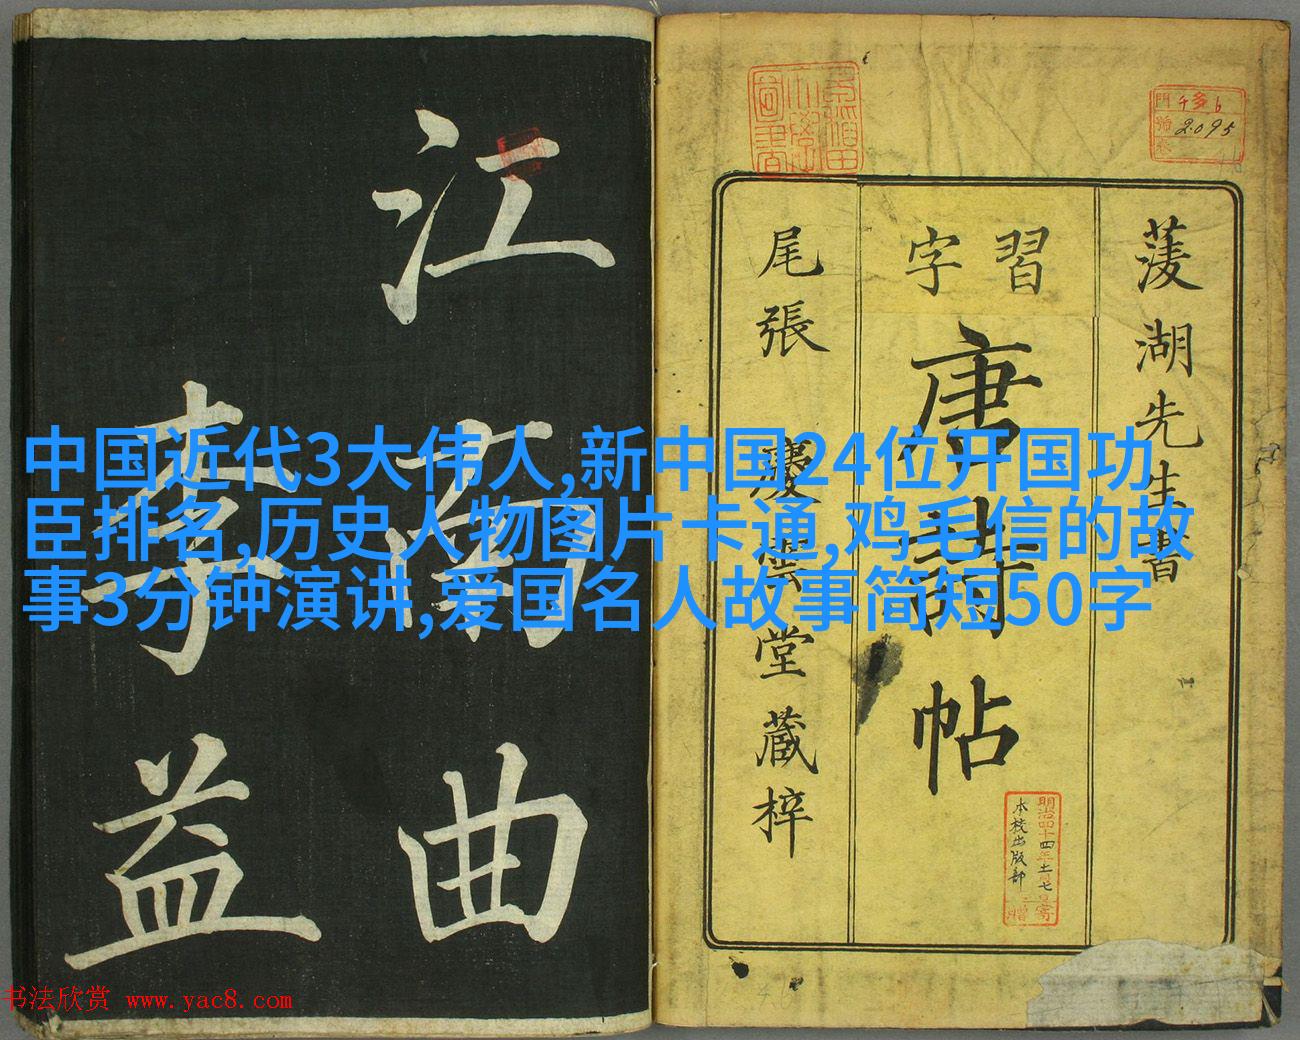 江南曲
李益
菱湖先生書
習字
唐詩帖
尾張 慶雲堂藏梓
門 千多6
號 2095
卷
明治四十四年十一月七日寄贈
本校出版部
中国近代3大伟人,新中国24位开国功
臣排名,历史人物图片卡通,鸡毛信的故
事3分钟演讲,爱国名人故事简短50字
书法欣赏 www.yac8.com